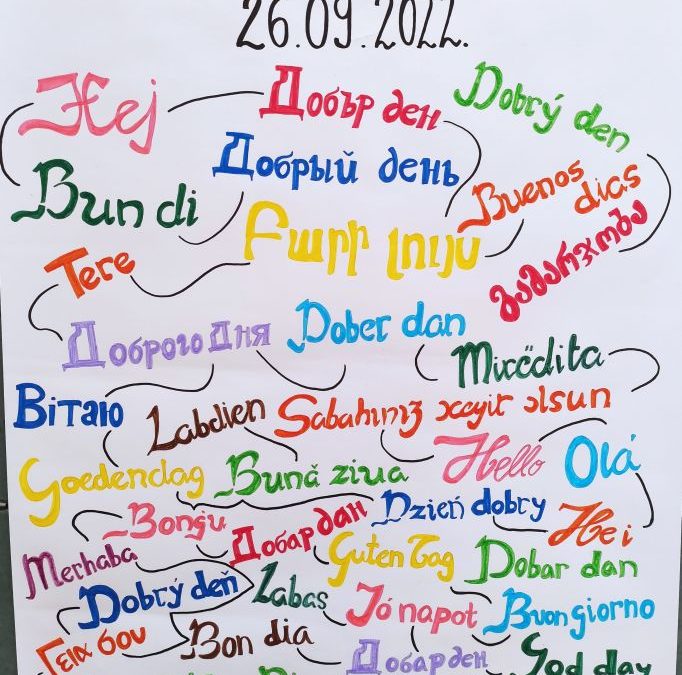 26.09.2022.
Hej
Добър ден
Dobrý den
Добрый день
Bun di
Buenos dias
Բարի լույս
გამარჯობა
Tere
Доброго дня
Dober dan
Mirëdita
Вітаю
Labdien
Sabahınız xeyir olsun
Hello
Olá
Goedendag
Bună ziua
Dzień dobry
Bonġu
Добар дан
Hei
Merhaba
Guten Tag
Dobar dan
Dobrý deň
Labas
Jó napot
Buon giorno
Γεια σου
Bon dia
Добар ден
God dag